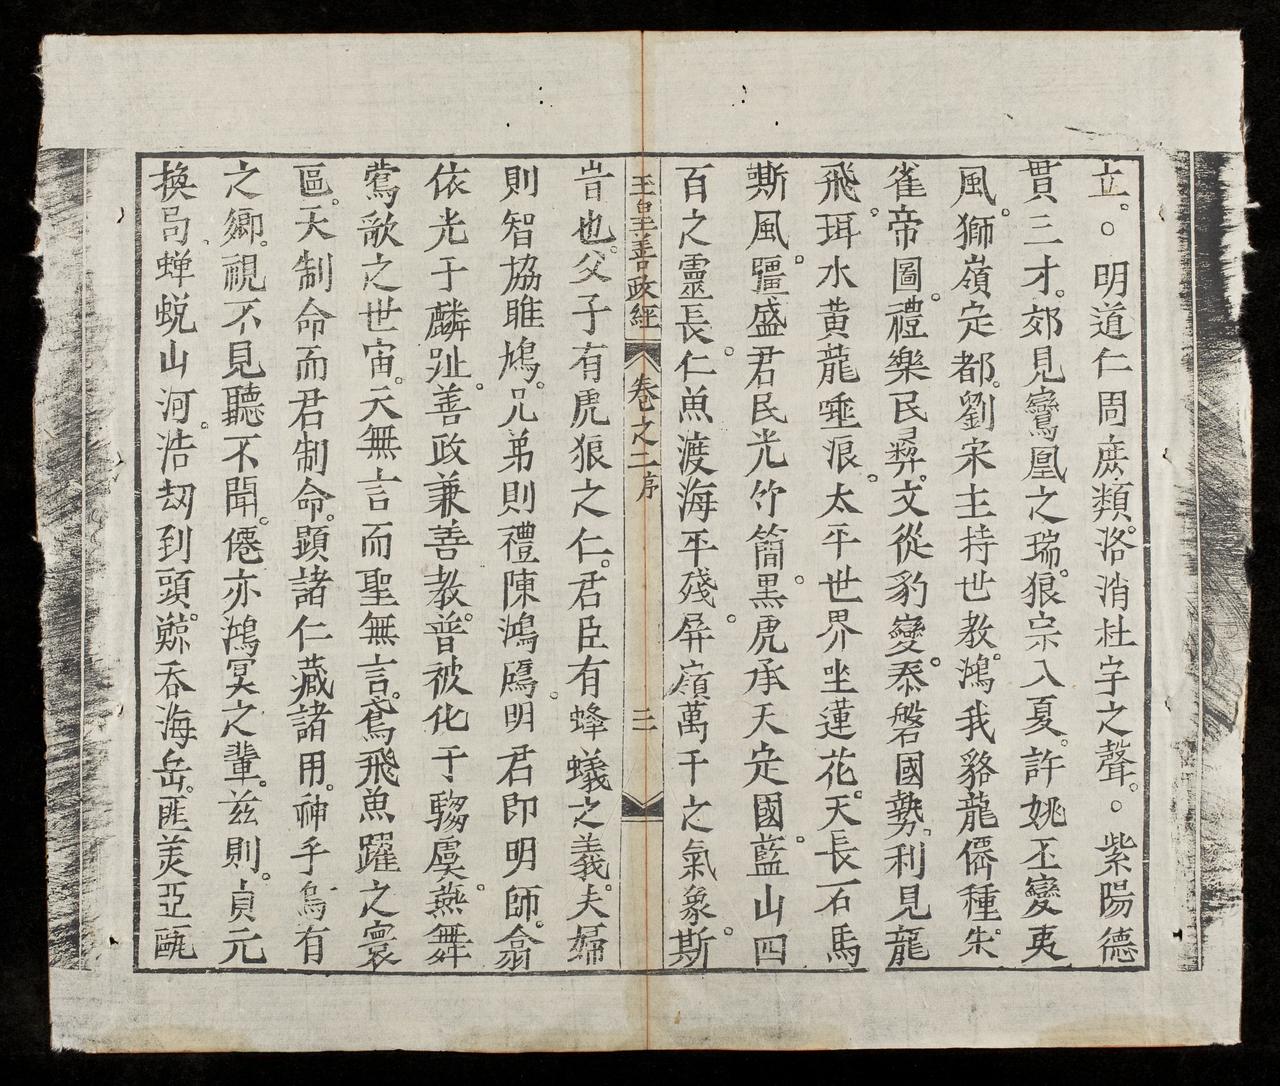 立。○明道仁周庶類。洛消杜宇之聲。○紫陽德
貫三才。郊見鸞凰之瑞。狼宗入夏。許姚丕變夷
風。獅嶺定都。劉宋主持世教。鴻我貉龍儒種。朱
雀帝圖。禮樂民彛。文從豹變。泰磐國勢。利見龍
飛。珥水黃龍唾浪。太平世界坐蓮花。天長石馬
斯風。彊盛君民光竹簡。黑虎承天定國。藍山四
百之靈長。仁魚渡海平殘。屏嶺萬千之氣象。斯
玉皇善政經 卷之二序 三
旹也。父子有虎狼之仁。君臣有蜂蟻之義。夫婦
則智協雎鳩。兄弟則禮陳鴻鴈。明君即明師。翕
依光于麟趾。善政兼善教。普被化于騶虞。燕舞
鶯歌之世宙。天無言而聖無言。鳶飛魚躍之寰
區。天制命而君制命。顕諸仁藏諸用。神乎烏有
之鄉。視不見聽不聞。僊亦鴻冥之輩。茲則。貞元
換局、蟬蛻山河。浩刼到頭。鯨吞海岳。匪羙亞甌